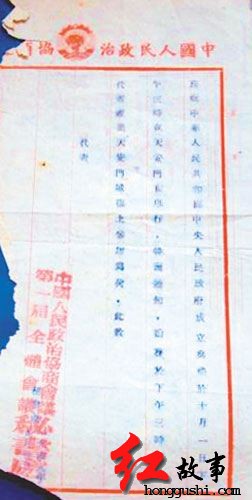 中國人民政治協
慶祝中華人民共和國中央人民政府成立典禮於十月一日
午三時在天安門舉行，下午三時
代表天安門城樓上參加為荷。此致
代表
中國人民政治協商會議
第一屆全體會議秘書處
红故事
honggushi.com